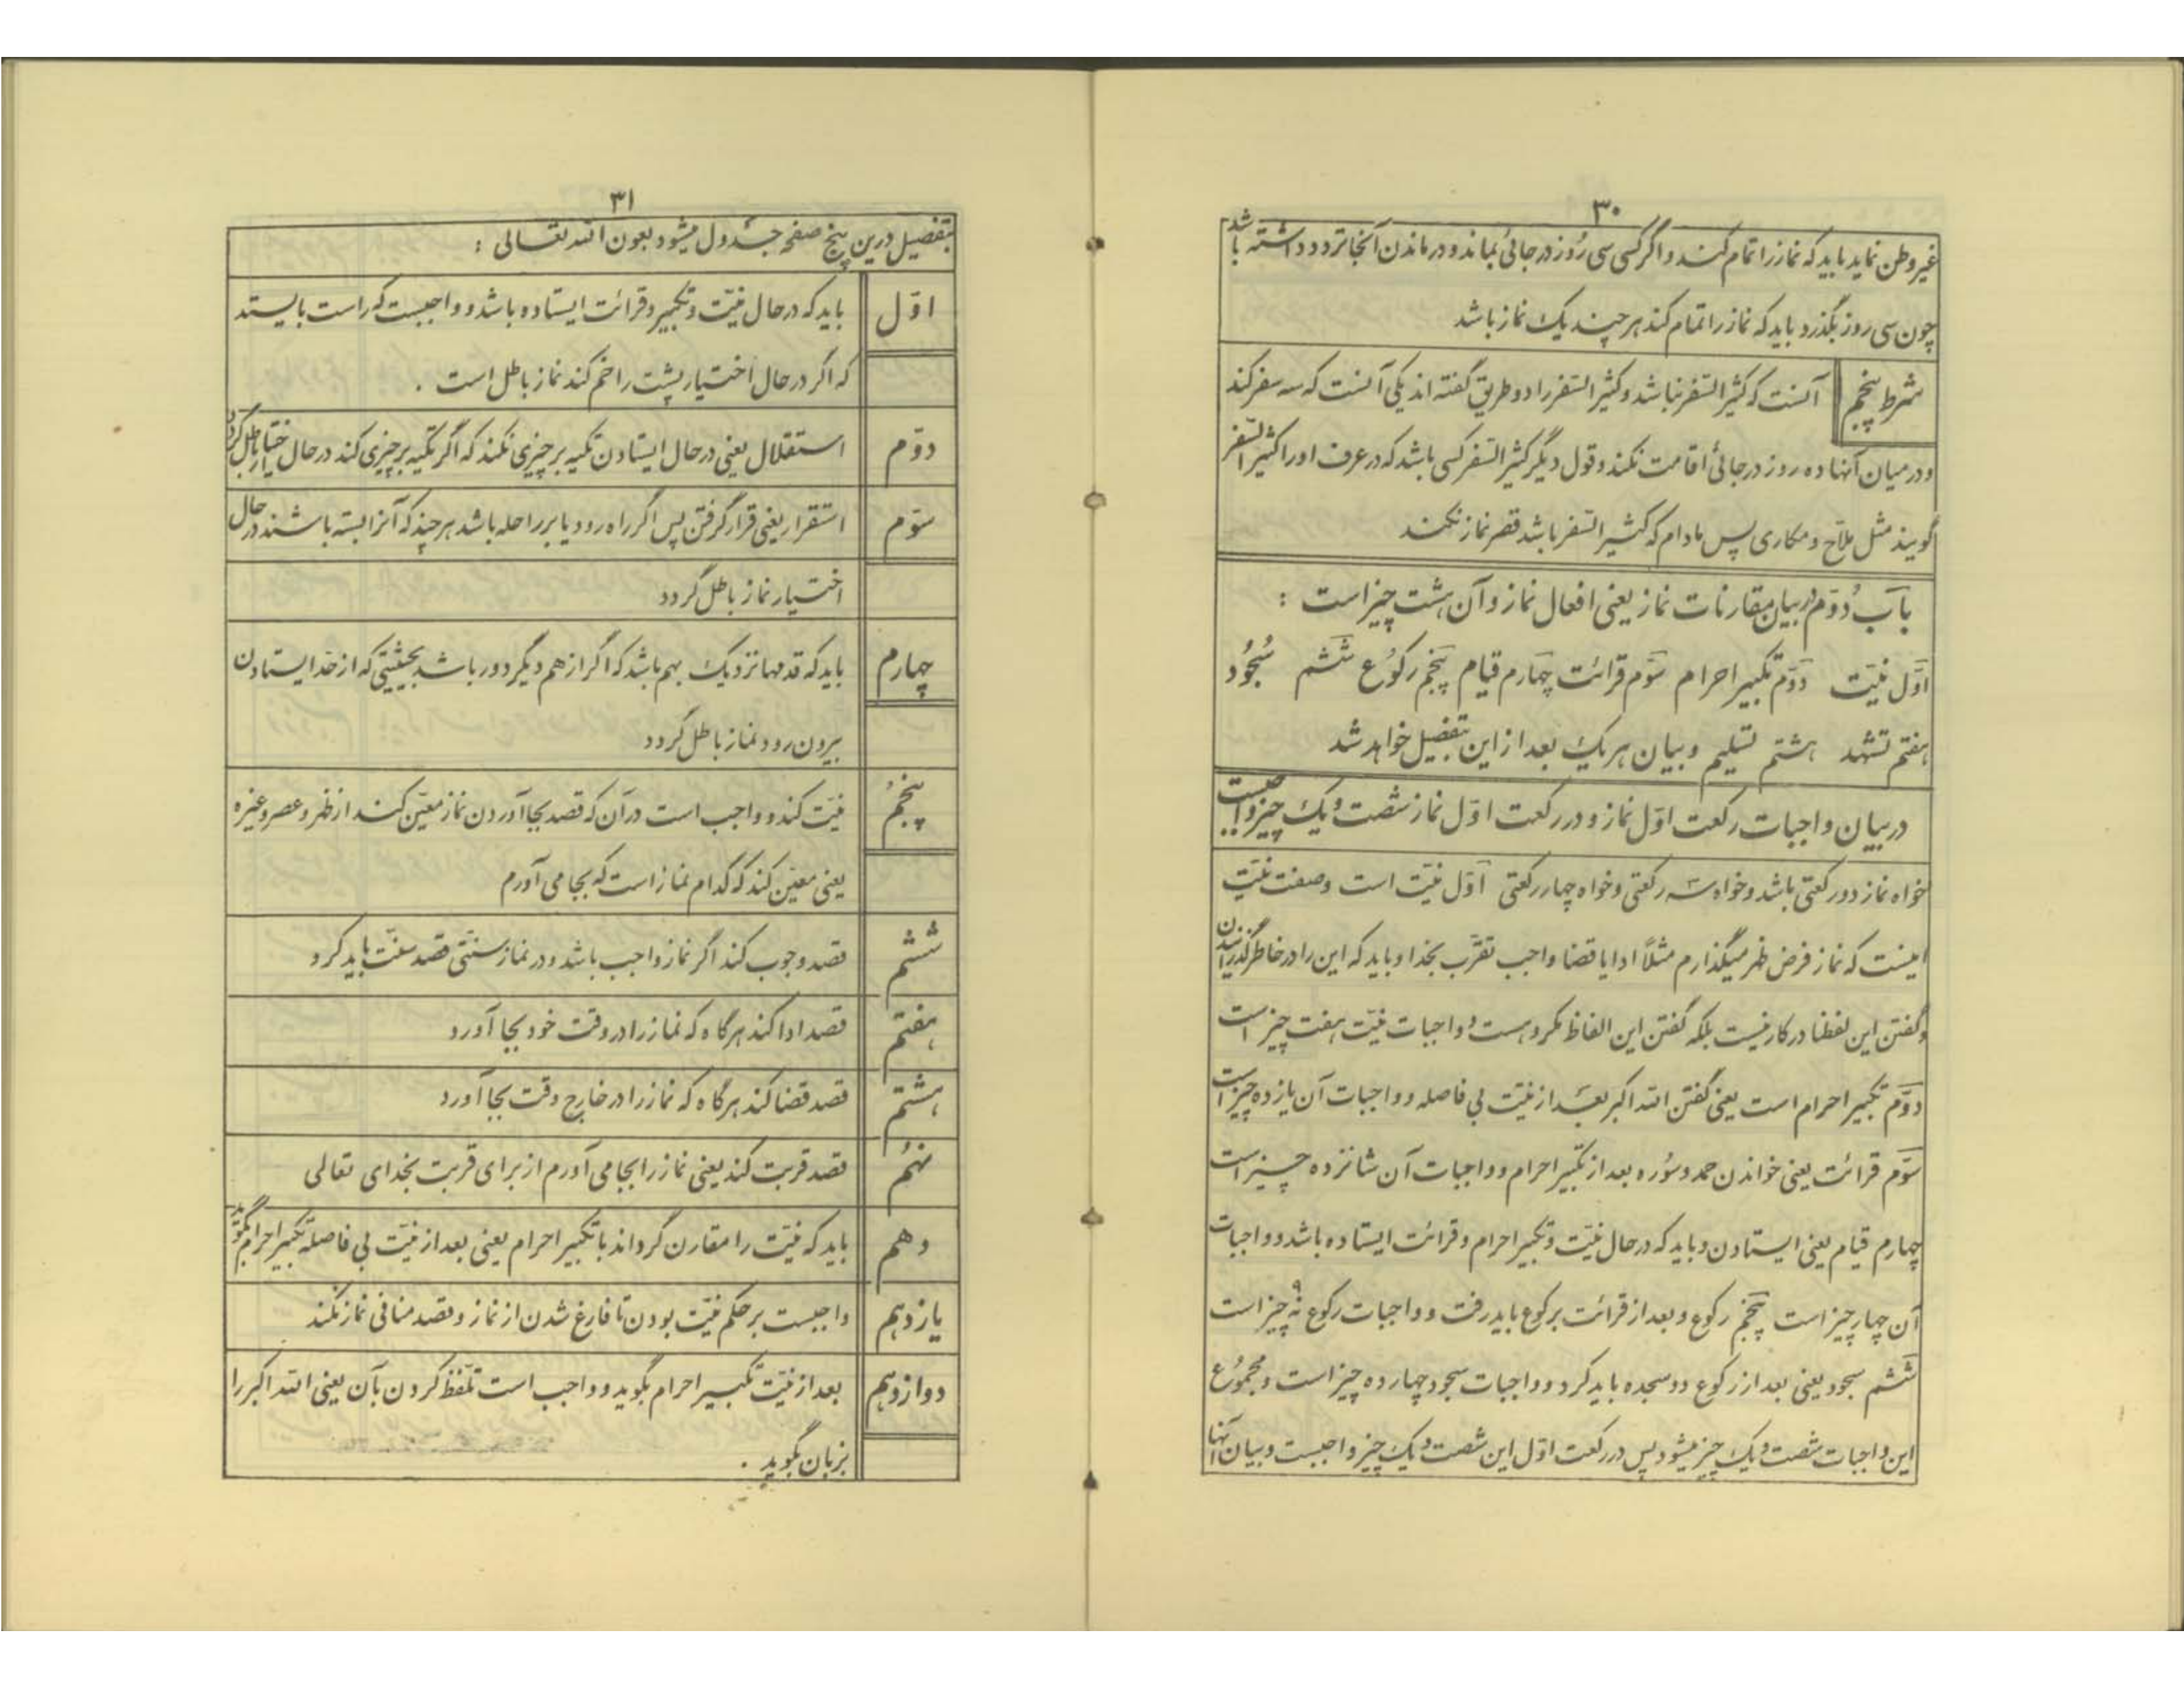 ۳۰
غیر وطن نماید باید که نماز را تمام کند و اگر کسی سی روز در جائی بماند و در ماندن آنجا تردد داشته باشد
چون سی روز بگذرد باید که نماز را تمام کند هر چند یک نماز باشد
شرط پنجم آنست که کثیر السّفر نباشد و کثیر السّفر را دو طریق گفته اند یکی آنست که سه سفر کند
و در میان آنها ده روز در جائی اقامت نکند و قول دیگر کثیر السّفر کسی باشد که در عرف او را کثیر السّفر
گویند مثل ملّاح و مکاری پس مادام که کثیر السّفر باشد قصر نماز نکند
باب دُوّم در بیان مقارنات نماز یعنی افعال نماز و آن هشت چیز است :
اوّل نیّت دوّم تکبیر احرام سوّم قرائت چهارم قیام پنجم رکوع ششم سُجُود
هفتم تشهد هشتم تسلیم و بیان هر یک بعد از این بتفصیل خواهد شد
در بیان واجبات رکعت اوّل نماز و در رکعت اوّل نماز شصت و یک چیز واجبست
خواه نماز دو رکعتی باشد و خواه سه رکعتی و خواه چهار رکعتی اوّل نیّت است و صفت نیّت
اینست که نماز فرض ظهر میگذارم مثلاً ادا یا قضا واجب تقرّب بخدا و باید که این را در خاطر گذرانیدن
و گفتن این لفظها در کار نیست بلکه گفتن این الفاظ مکروهست و واجبات نیّت هفت چیز است
دوّم تکبیر احرام است یعنی گفتن الله اکبر بعد از نیّت بی فاصله و واجبات آن یازده چیز است
سوّم قرائت یعنی خواندن حمد و سُوره بعد از تکبیر احرام و واجبات آن شانزده چیز است
چهارم قیام یعنی ایستادن و باید که در حال نیّت و تکبیر احرام و قرائت ایستاده باشد و واجبات
آن چهار چیز است پنجم رکوع و بعد از قرائت برکوع باید رفت و واجبات رکوع نُه ۹ چیز است
ششم سجود یعنی بعد از رکوع دو سجده باید کرد و واجبات سجود چهارده چیز است و مجموُع
این واجبات شصت و یک چیز میشود پس در رکعت اوّل این شصت و یک چیز واجبست و بیان آنها
۳۱
بتفصیل درین پنج صفحه جدول میشود بعون الله تعالی :
اوّل باید که در حال نیّت و تکبیر و قرائت ایستاده باشد و واجبست که راست بایستد
که اگر در حال اختیار پشت را خم کند نماز باطل است .
دوّم استقلال یعنی در حال ایستادن تکیه بر چیزی نکند که اگر تکیه بر چیزی کند در حال اختیار باطل گردد
سوّم استقرار یعنی قرار گرفتن پس اگر راه رود یا بر راحله باشد هر چند که آنرا بسته باشند در حال
اختیار نماز باطل گردد
چهارم باید که قدمها نزدیک بهم باشد که اگر از هم دیگر دور باشد بحیثیتی که از حد ایستادن
بیرون رود نماز باطل گردد
پنجمُ نیّت کند و واجب است در آن که قصد بجا آوردن نماز معیّن کند از ظهر و عصر و غیره
یعنی معیّن کند که کدام نماز است که بجا می آورم
ششم قصد وجوب کند اگر نماز واجب باشد و در نماز سنّتی قصد سنّت باید کرد
هفتم قصد ادا کند هرگاه که نماز را در وقت خود بجا آورد
هشتم قصد قضا کند هرگاه که نماز را در خارج وقت بجا آورد
نهُم قصد قربت کند یعنی نماز را بجا می آورم از برای قربت بخدای تعالی
دهم باید که نیّت را مقارن گرداند با تکبیر احرام یعنی بعد از نیّت بی فاصله تکبیر احرام بگوید
یازدهم واجبست بر حکم نیّت بودن تا فارغ شدن از نماز و قصد منافی نماز نکند
دوازدهم بعد از نیّت تکبیر احرام بگوید و واجب است تلفّظ کردن بآن یعنی الله اکبر را
بزبان بگوید .